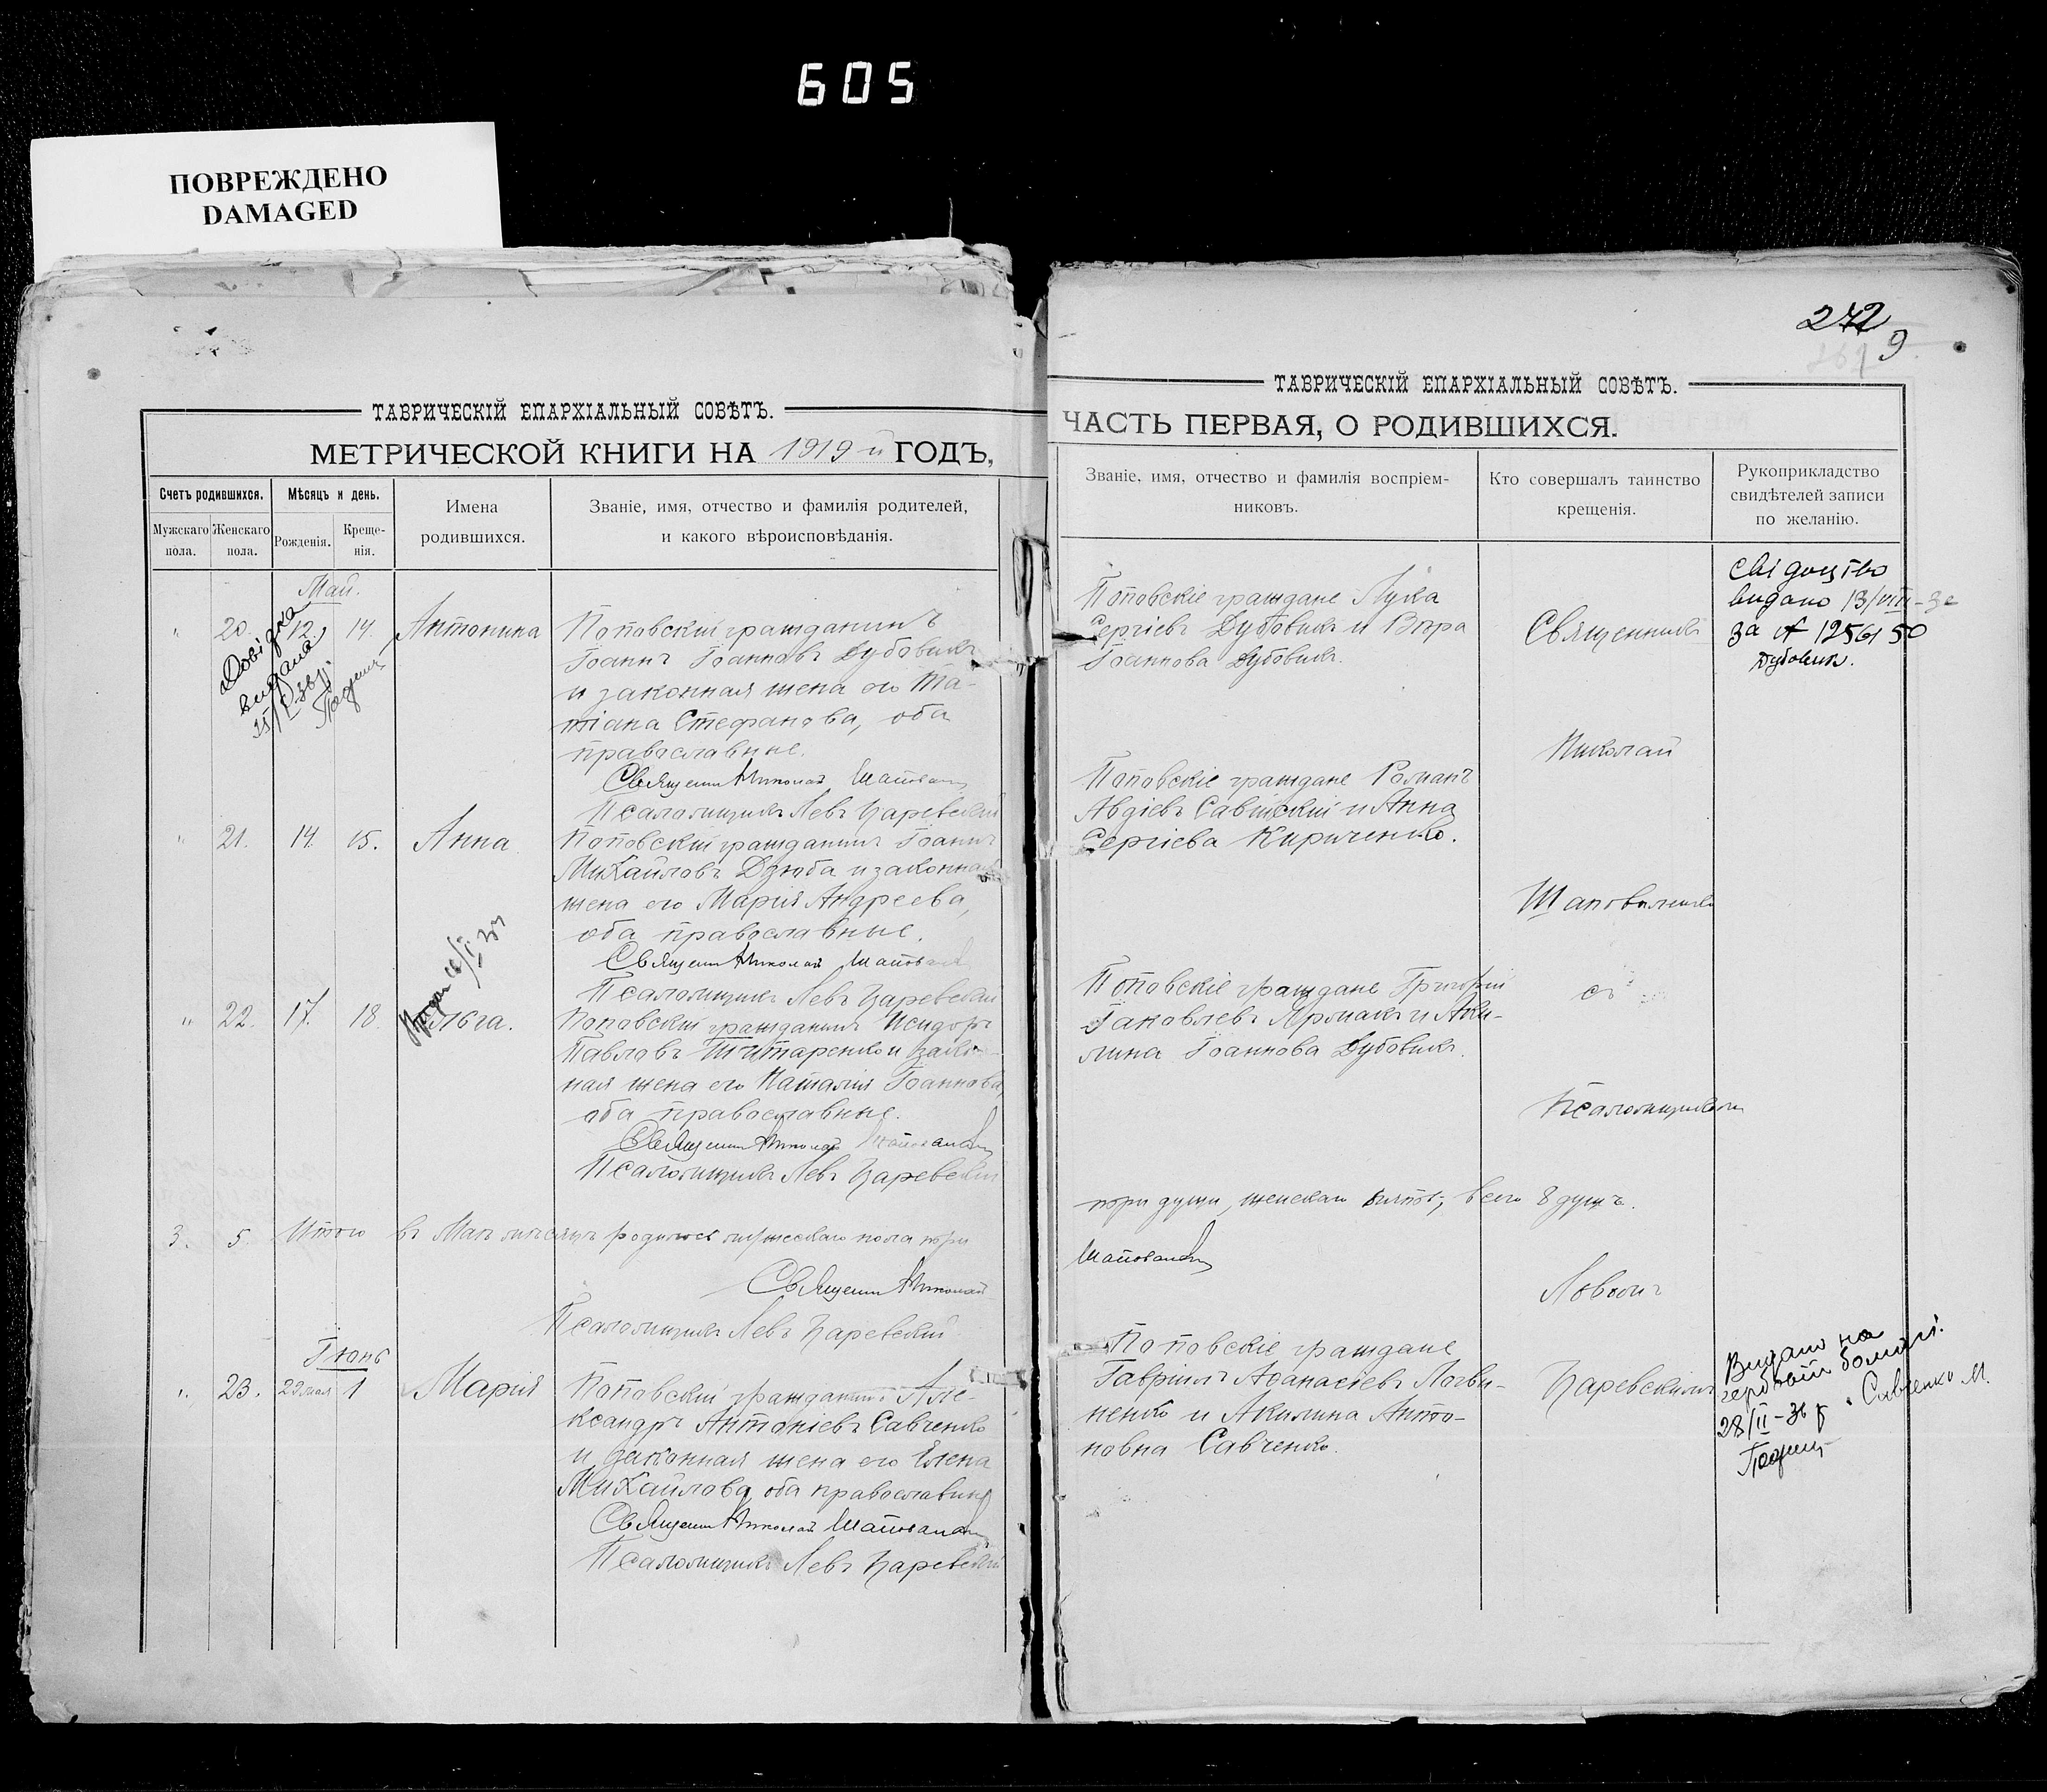 605
ПОВРЕЖДЕНО
DAMAGED
272
9
ТАВРИЧЕСКІЙ ЕПАРХІАЛЬНЫЙ СОВѢТЪ.
МЕТРИЧЕСКОЙ КНИГИ НА 1919 й ГОДЪ,
Счетъ родившихся.
Мужскаго пола.
Женскаго пола.
Мѣсяцъ и день.
Рожденія.
Креще-
нія.
Имена
родившихся.
Званіе, имя, отчество и фамилія родителей,
и какого вѣроисповѣданія.
Май.
" 20. 12. 14. Антонина
Поповскій гражданинъ
Іоаннъ Іоанновъ Дубовикъ
и законная жена его Та-
тіана Стефанова, оба
православные.
Священникъ Николай
Псаломщикъ Левъ Царевскій
Довідка
видана
" 21. 14. 15. Анна
Поповскій гражданинъ Іоаннъ
Михайловъ Дзюба и законная
жена его Марія Андреева,
оба православные.
Священникъ Николай
Псаломщикъ Левъ Царевскій
" 22. 17. 18. Ольга.
Поповскій гражданинъ Исидоръ
Павловъ Титаренко и закон-
ная жена его Наталія Іоаннова,
оба православные.
Священникъ Николай
Псаломщикъ Левъ Царевскій
3. 5. Итого въ Маѣ мѣсяцѣ родилось мужескаго пола три
Священникъ Николай
Псаломщикъ Левъ Царевскій
Іюнь
" 23. 29 мая 1 Марія
Поповскій гражданинъ Але-
ксандръ Антоніевъ Савченко
и законная жена его Елена
Михайлова, оба православные
Священникъ Николай
Псаломщикъ Левъ Царевскій
ТАВРИЧЕСКІЙ ЕПАРХІАЛЬНЫЙ СОВѢТЪ.
ЧАСТЬ ПЕРВАЯ, О РОДИВШИХСЯ.
Званіе, имя, отчество и фамилія воспріем-
никовъ.
Кто совершалъ таинство
крещенія.
Рукоприкладство
свидѣтелей записи
по желанію.
Поповскіе граждане Лука
Сергіевъ Дубовикъ и Вѣра
Іоаннова Дубовикъ.
Поповскіе граждане Романъ
Авдіевъ Савицкій и Анна
Сергіева Кириченко.
Поповскіе граждане Григорій
Іаковлевъ Ярмакъ и Аки-
лина Іоаннова Дубовикъ.
три души, женскаго пять, всего 8 душъ.
Поповскіе граждане
Гавріилъ Аѳанасіевъ Логви-
ненко и Акилина Анто-
новна Савченко.
Священникъ
Николай
Шаповаленко
съ
Псаломщикомъ
Львомъ
Царевскимъ
свідоцтво
видано 13/VIII-
за № 125650
Дубовик.
Видано на
гербовій бомазі.
28/II-36 р. Савченко М.